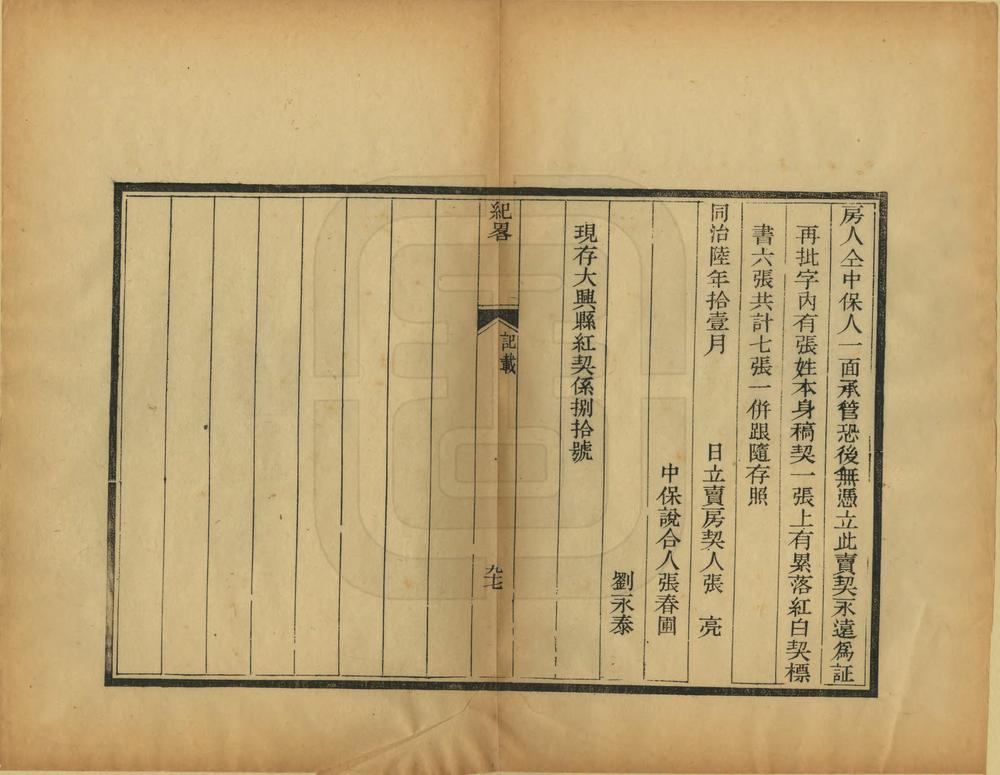 房人仝中保人一面承管恐後無憑立此賣契永遠爲証
再批字內有張姓本身稿契一張上有累落紅白契標
書六張共計七張一併跟隨存照
同治陸年拾壹月 日立賣房契人張 亮
中保說合人張春圃
劉永泰
現存大興縣紅契係捌拾號
紀畧 記載 九七